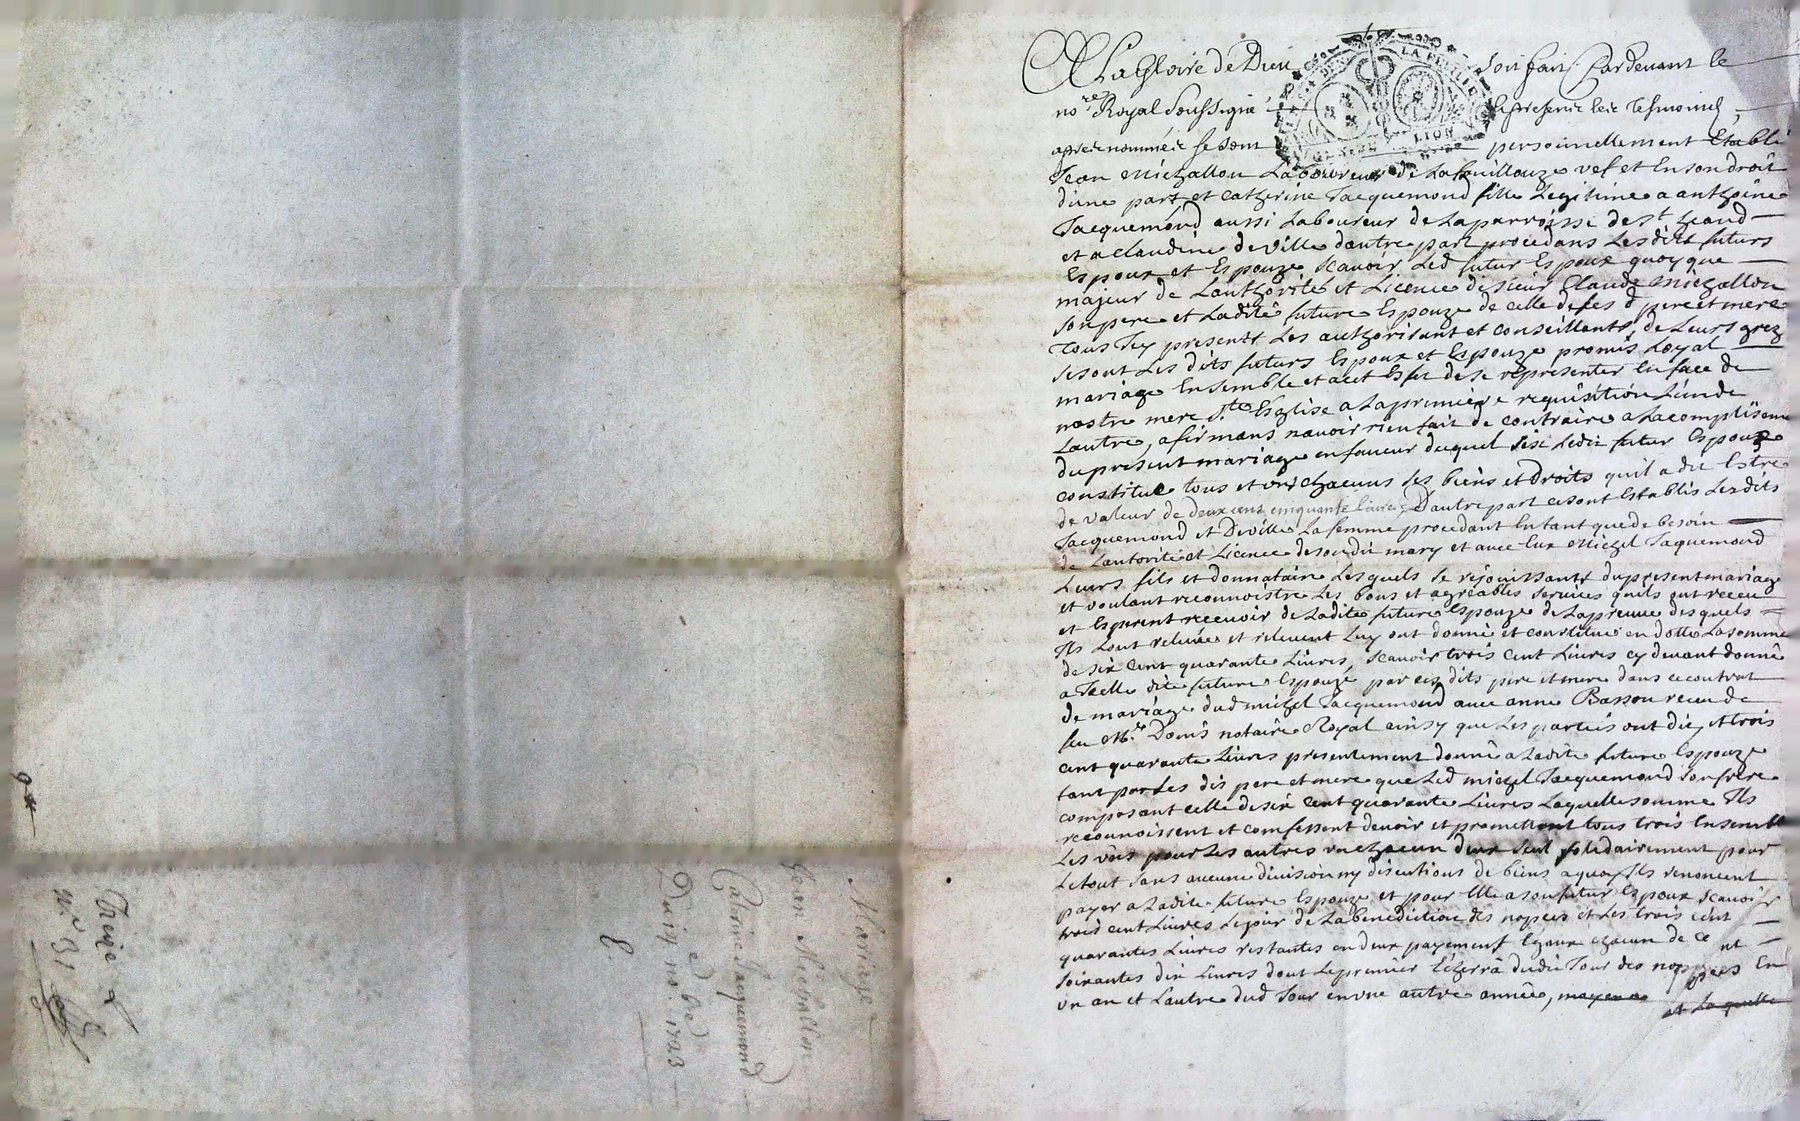 A La Gloire de Dieu Soit fait Pardevant le
no.re Royal Soussigné Es presence des Tesmoins
apres nommés se sont personnellement Establi
Jean Michallon Laboureur de Lafouillouze vef et En son droit
d'une part et Catherine Jacquemond fille Legitime a anthoine
Jacquemond aussi Laboureur de La parroisse de St heand
et a claudine deville dautre part procedans Lesdits futurs
Espoux et Espouze scavoir Led futur Espoux quoy que
majeur de Lauthorité et Licence de sieur Claude Michallon
son pere et Ladite future Espouze de celle de ses d pere et mere
tous Icy presents Les authorisant et conseillants, de Leurs grez
se sont Les dits futurs Espoux et Espouze promis Loyal
mariage Ensemble et a cet Effet de se representer En face de
nostre mere Ste Esglise a La premiere requisition Lun de
Lautre, afirmans navoir rien fait de contraire a Lacomplissem
du present mariage en faveur duquel Led futur Espoux
constitue tous et un chacuns ses biens et droits quil a dit Estre
de valeur de deux cens cinquante livres Dautre part se sont Establis Lesdits
Jacquemond et Deville La femme procedant En tant que de besoin
de Lautorité et Licence de son dit mary et avec Eux Michel Jaquemond
Leurs fils et donnataire Lesquels se rejouissants du present mariage
et voulant reconnoistre Les bons et agreables services quils ont receu
et Esperent recevoir de Ladite future Espouze de La preuve desquels
Ils Lont relevée et relevent Luy ont donné et constitué en dotte La somme
de six cent quarante Livres, scavoir trois cent Livres cy devant donné
a Icelle dite future Espouze par ces dits pere et mere dans ce contrat
de mariage dud michel Jacquemond avec anne Basson receu de
feu Mre Denis notaire Royal ainsy que Les parties ont dit, et trois
cent quarante Livres presentement donné a Ladite future Espouze
tant par Les dis pere et mere que Led michel Jacquemond son frere
composant celle de six cent quarante Livres Laquelle somme Ils
reconnoissent et comfessent devoir et promettent tous trois Ensemble
Les uns pour Les autres un chacun deux seul solidairement pour
Le tout sans aucune division ny discutions de biens a quoy Ils renoncent
payer a Ladite future Espouze et pour Elle a son futur Espoux scavoir
trois cent Livres Le jour de La benediction des nopces et Les trois cent
quarantes Livres restantes en deux payement Egaux chacun de cent
soixantes dix Livres dont Le premier Echerra dudit Jour des nopces En
un an et Lautre dud Jour en une autre année, moyen
et Laquelle
LION
Mariage
Jean Michallon
Catrine Jacquemond
Du 19 no.bre 1723
8.
No 31